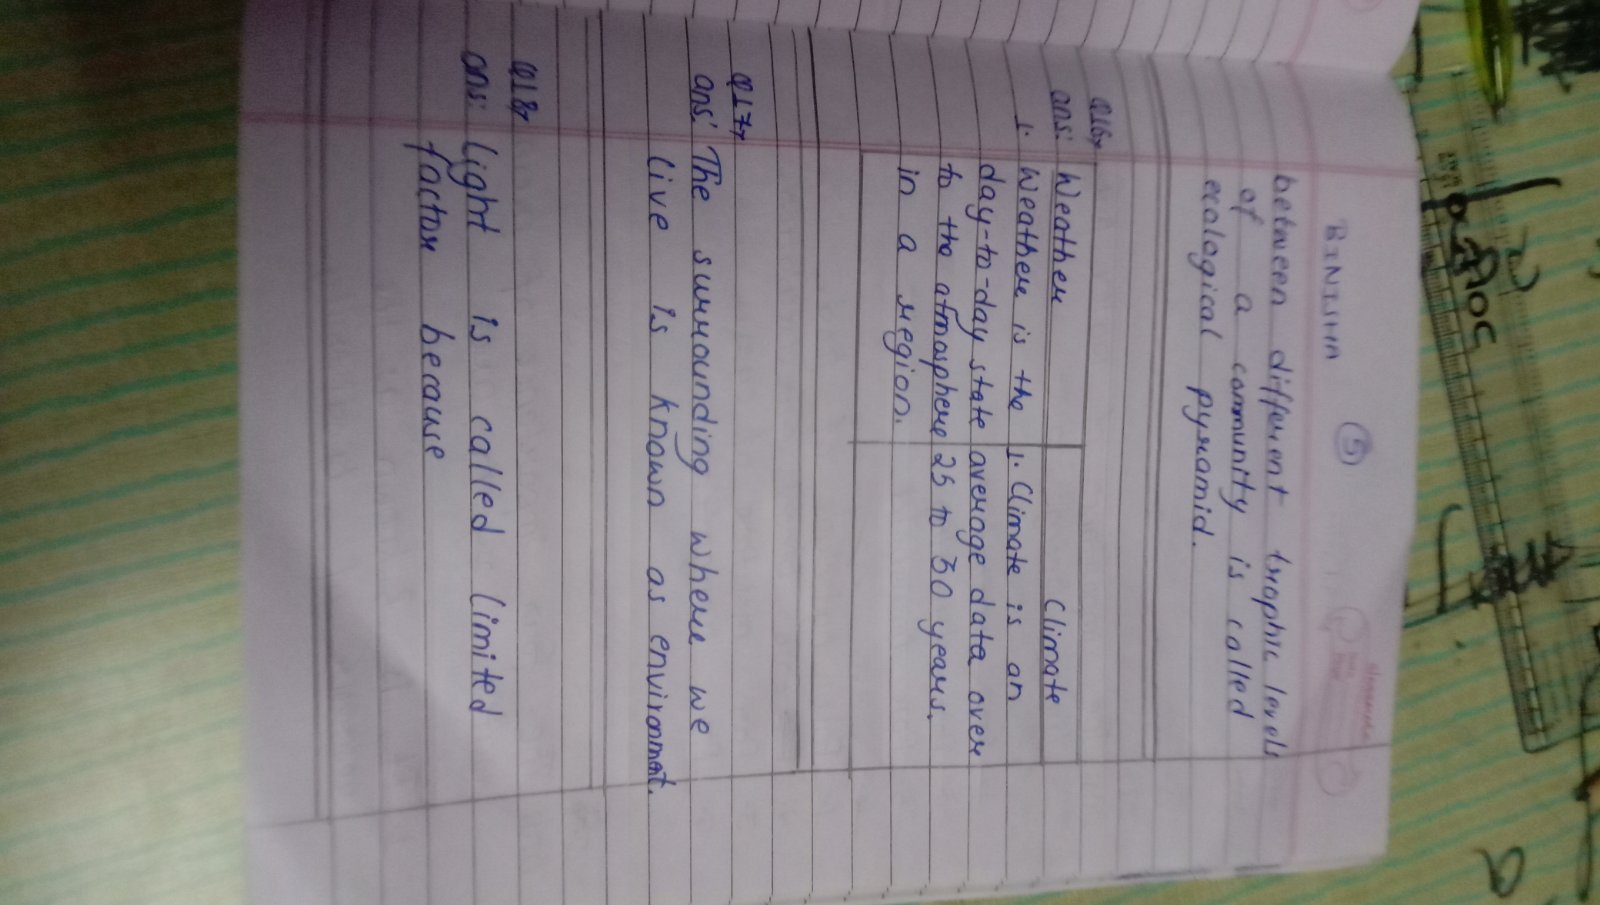 BINISHA
5
between different trophic levels
of a community is called
ecological pyramid.
Q16
ans:
Weather
Climate
1. Weather is the
day-to-day state
to the atmosphere
in a region.
1. Climate is an
average data over
25 to 30 years.
Q17
ans: The surrounding where we
live is known as environment.
Q18
ans: light is called limited
factor because